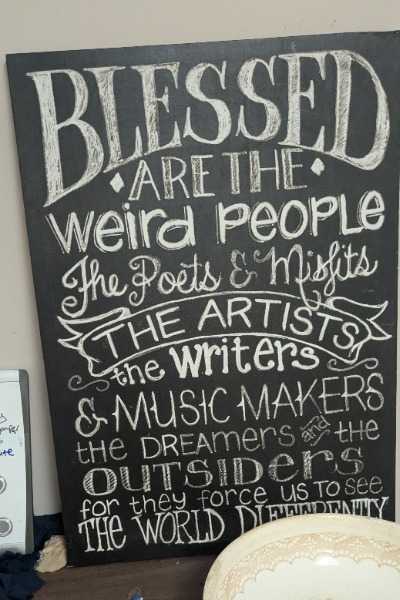 BLESSED
ARE THE
weird people
The Poets & Misfits
THE ARTISTS
the writers
& MUSIC MAKERS
the DREAMERS and the
OUTSIDERS
for they force us to see
THE WORLD DIFFERENTLY